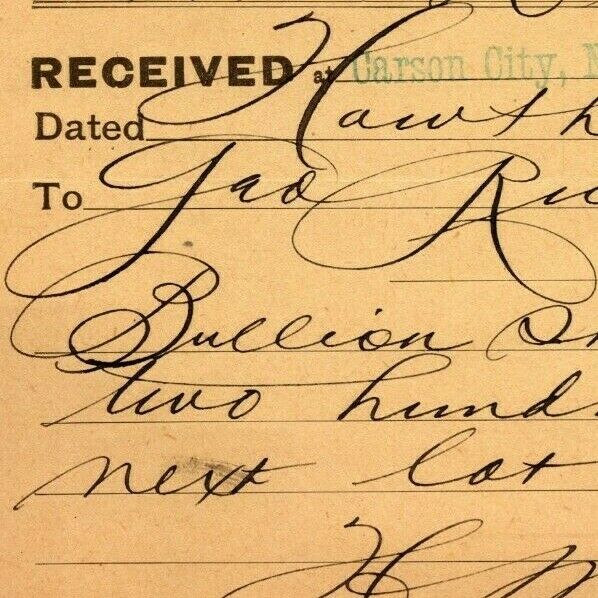 RECEIVED at Carson City, N
Dated Hawth
To Jas Ri
Bullion
two hund
next lot
H